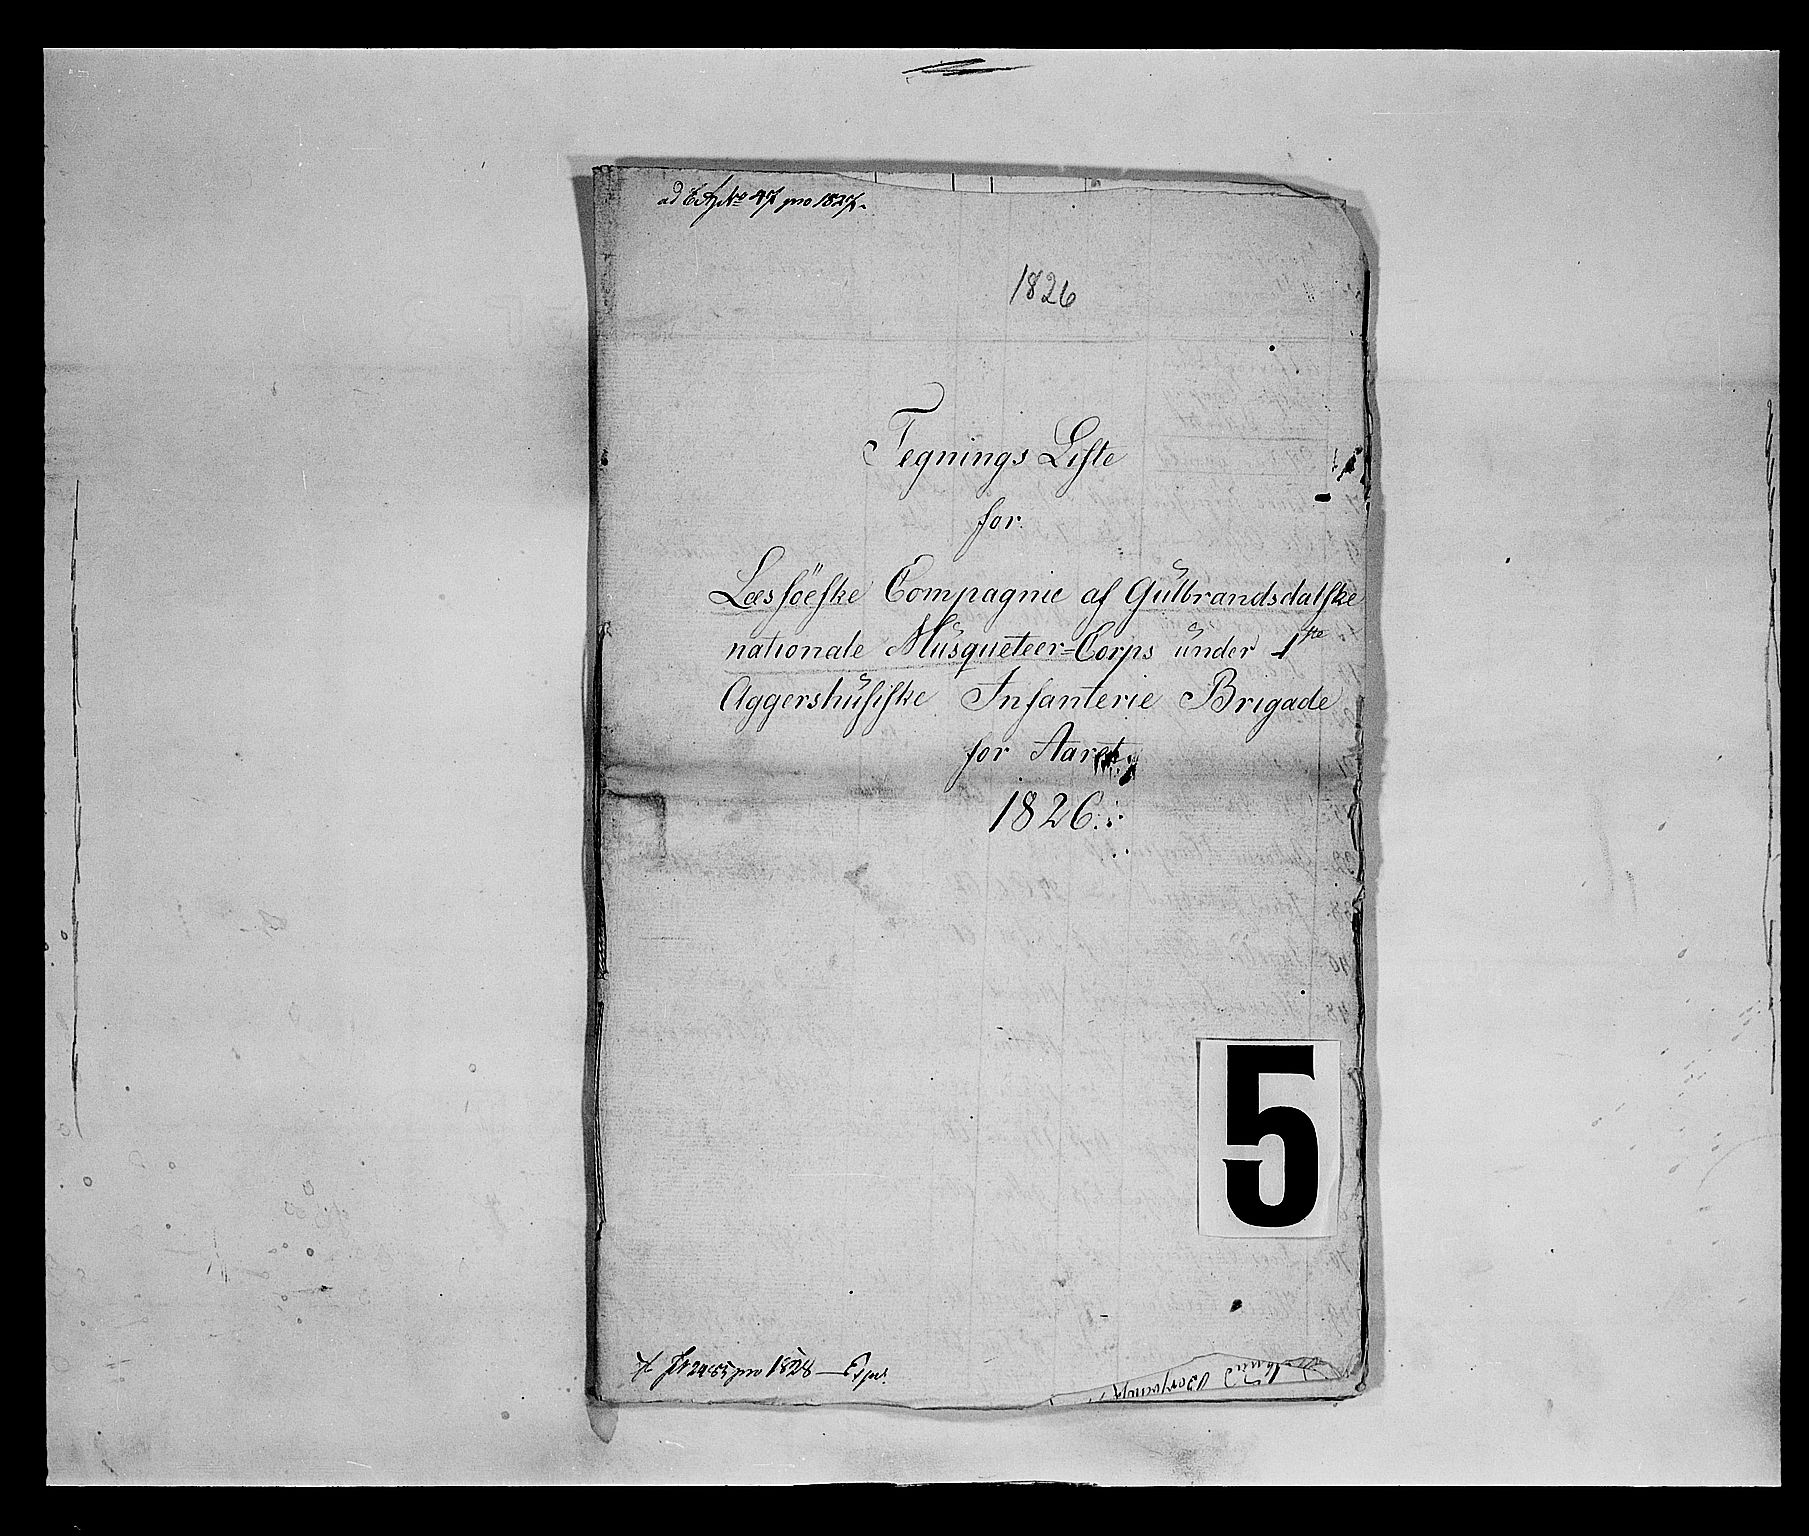 ad No 47 pro 1827.
1826
Tegnings Liste
for
Læsföeske Compagnie af Gülbrandsdalske
nationale Müsqueteer=Corps ünder 1ste
Aggershüsiske Infanterie Brigade
for Aaret
1826.
5
2485 pro 1828 —